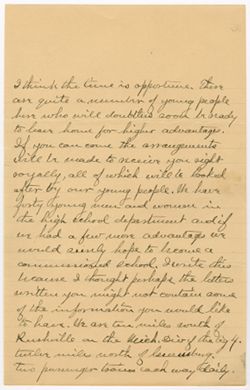 I think the time is opportune. There
are quite a number of young people
here who will doubtless soon be ready
to leave home for higher advantage.
If you can come the arrangements
will be made to receive you right
royally, all of which will be looked
after by our young people. We have
forty young men and women in
the high school department and if
we had a few more advantages we
would surely hope to become a
commissioned school. I write this
because I thought perhaps the letters
written you might not contain some
of the information you would like
to have. We are ten miles south of
Rushville on the Div of the Big 4.
twelve miles north of
two passenger trains each way daily.